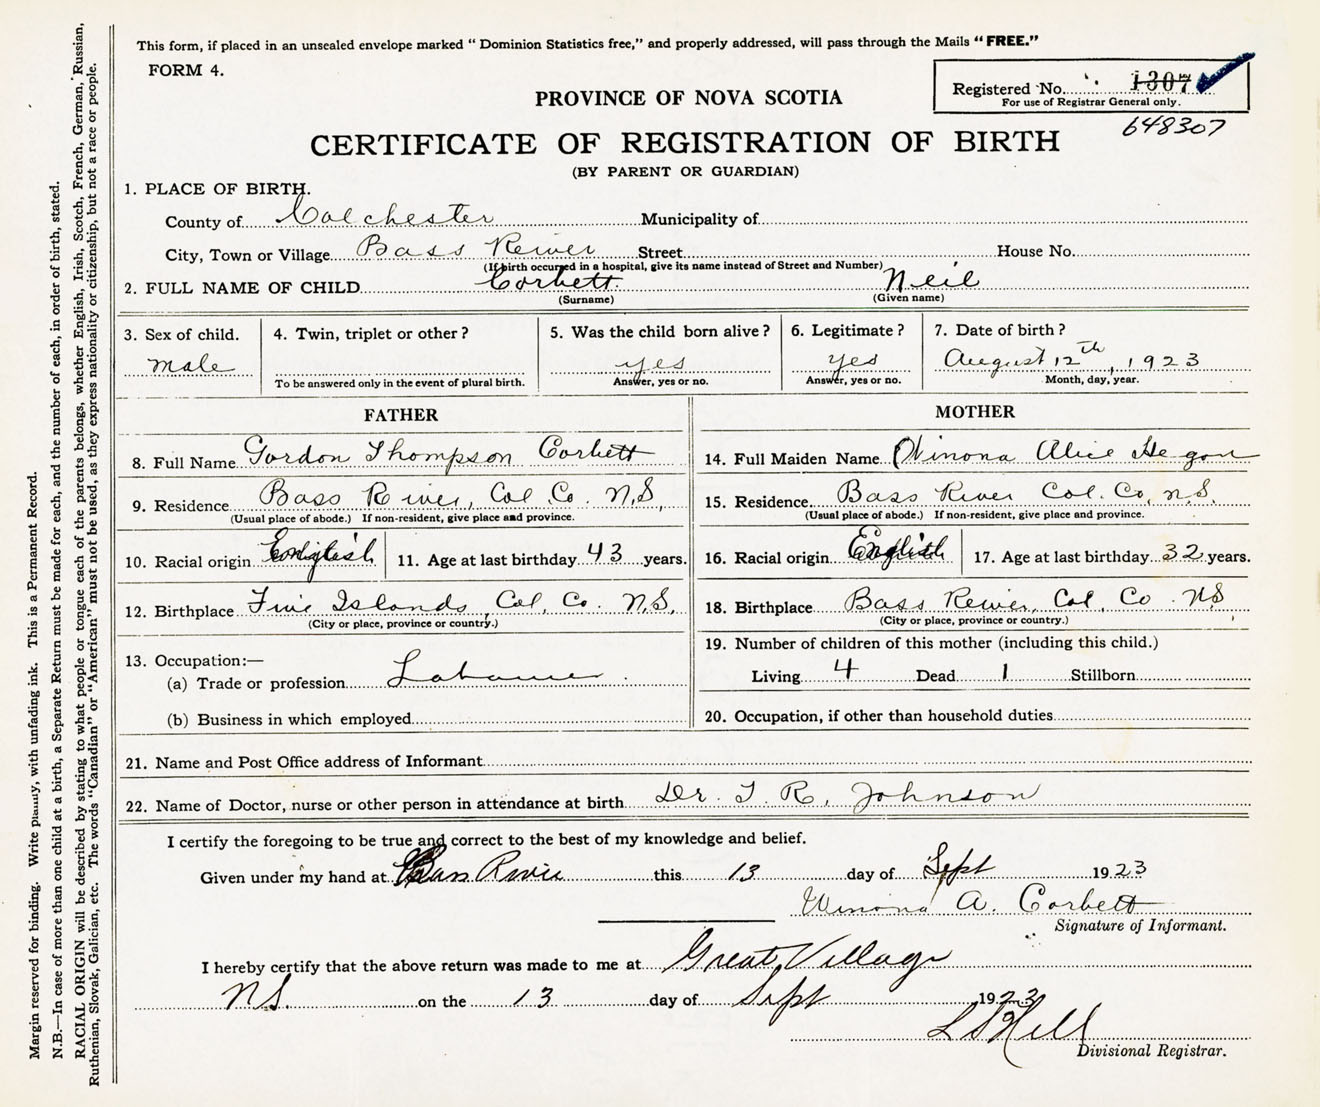 This form, if placed in an unsealed envelope marked " Dominion Statistics free," and properly addressed, will pass through the Mails " FREE."
FORM 4.
Registered No. 1307
For use of Registrar General only.
648307
PROVINCE OF NOVA SCOTIA
CERTIFICATE OF REGISTRATION OF BIRTH
(BY PARENT OR GUARDIAN)
1. PLACE OF BIRTH.
County of Colchester Municipality of
City, Town or Village Bass River Street House No.
(If birth occurred in a hospital, give its name instead of Street and Number)
2. FULL NAME OF CHILD Corbett Neil
(Surname) (Given name)
3. Sex of child. 4. Twin, triplet or other ? 5. Was the child born alive ? 6. Legitimate ? 7. Date of birth ?
male yes yes August 12th, 1923
To be answered only in the event of plural birth. Answer, yes or no. Answer, yes or no. Month, day, year.
FATHER MOTHER
8. Full Name Gordon Thompson Corbett 14. Full Maiden Name Winona Alice
9. Residence Bass River, Col. Co. N.S. 15. Residence Bass River Col. Co. N.S.
(Usual place of abode.) If non-resident, give place and province. (Usual place of abode.) If non-resident, give place and province.
10. Racial origin English 11. Age at last birthday 43 years. 16. Racial origin English 17. Age at last birthday 32 years.
12. Birthplace Five Islands, Col. Co. N.S. 18. Birthplace Bass River, Col. Co. N.S
(City or place, province or country.) (City or place, province or country.)
19. Number of children of this mother (including this child.)
13. Occupation:—
(a) Trade or profession Labourer Living 4 Dead 1 Stillborn
(b) Business in which employed 20. Occupation, if other than household duties
21. Name and Post Office address of Informant
22. Name of Doctor, nurse or other person in attendance at birth Dr. T. R. Johnson
I certify the foregoing to be true and correct to the best of my knowledge and belief.
Given under my hand at Bass River this 13 day of Sept 1923
Winona A. Corbett
Signature of Informant.
I hereby certify that the above return was made to me at Great Village
N.S. on the 13 day of Sept 1923
L S Hill
Divisional Registrar.
Margin reserved for binding. Write plainly, with unfading ink. This is a Permanent Record.
N.B.—In case of more than one child at a birth, a Separate Return must be made for each, and the number of each, in order of birth, stated.
RACIAL ORIGIN will be described by stating to what people or tongue each of the parents belongs, whether English, Irish, Scotch, French, German, Russian,
Ruthenian, Slovak, Galician, etc. The words "Canadian" or "American" must not be used, as they express nationality or citizenship, but not a race or people.